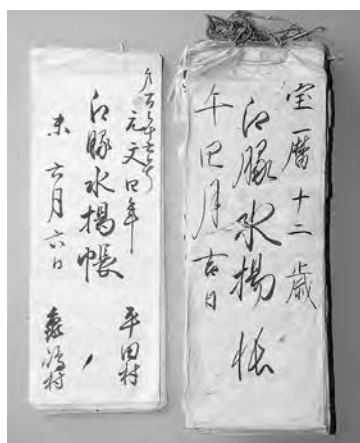 宝暦十二歳
江豚水揚帳
午四月吉日
元文四年
江豚水揚帳
未六月六日
平田村
村